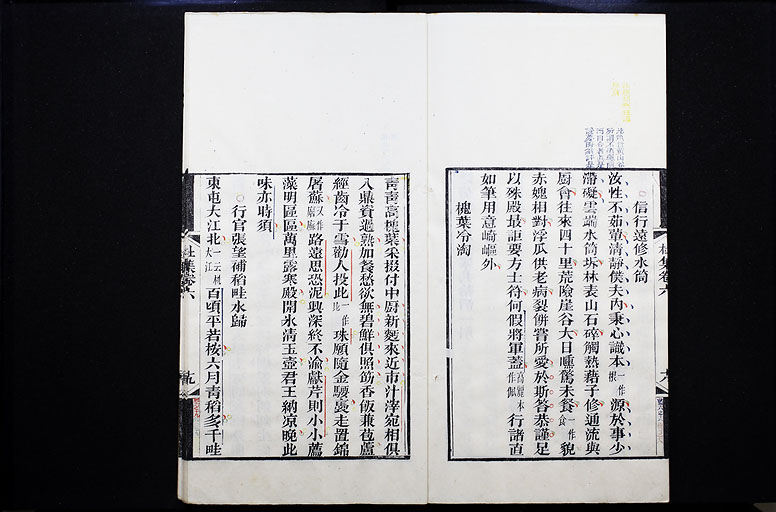 信行遠修水筒
汝性不茹葷清靜僕夫內秉心識本一作根源於事少
滯礙雲端水筒坼林表山石碎觸熱藉子修通流與
厨會往來四十里荒險崖谷大日曛驚未餐一作食貌
赤媿相對浮瓜供老病裂餅嘗所愛於斯答恭謹足
以殊殿最詎要方士符何假將軍蓋行諸直
如筆用意崎嶇外
槐葉冷淘
靑靑高槐葉采掇付中厨新麪來近市汁滓宛相俱
入鼎資過熟加餐愁欲無碧鮮俱照筯香飯兼苞蘆
經齒冷于雪勸人投此一作比珠願隨金騕褭走置錦
屠蘇路遠思恐泥興深終不渝獻芹則小小薦
藻明區區萬里露寒殿開氷淸玉壺君王納凉晚此
味亦時須
行官張望補稻畦水歸
東屯大江北百頃平若桉六月靑稻多千畦
杜集卷六
杜集卷六